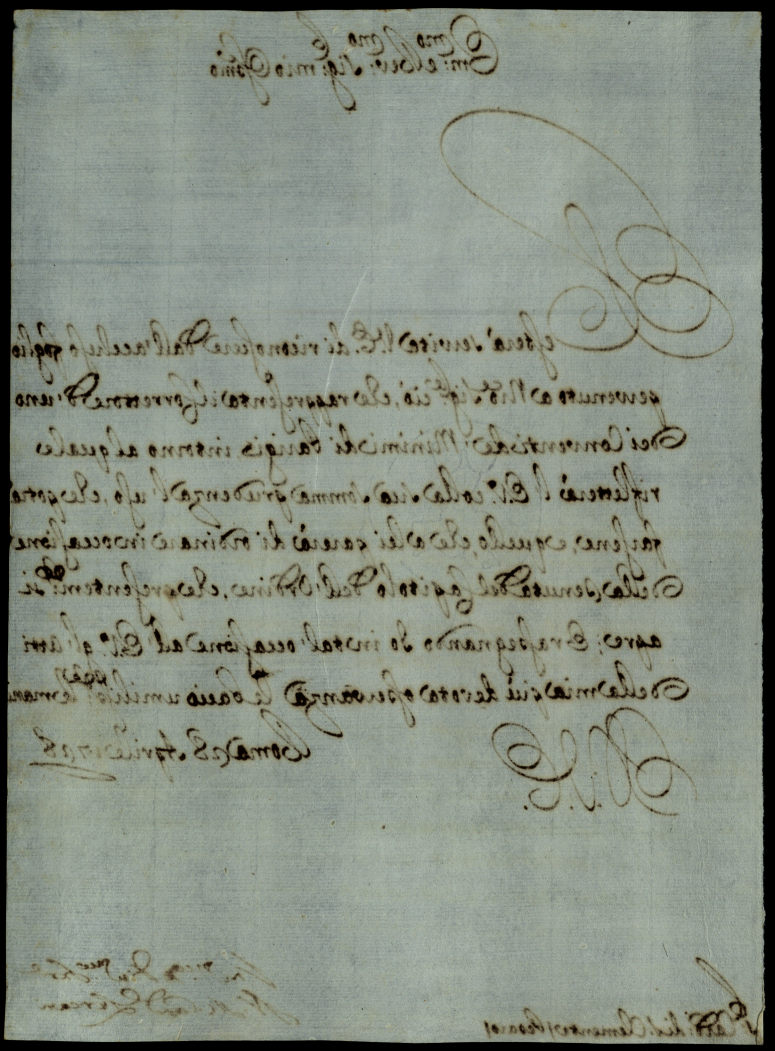 Em:mo e Rev:mo Sig: mio Oss:mo
esserà servita V.E. di riconoscere dall'accluso foglio
pervenuto a Nro Sig.re ciò, che rappresenta il Correttore d'uno
dei Conventi de Minimi di Parigi intorno al quale
rifletterà l'E.V. colla sua somma prudenza l'uso, che potrà
farsene, e quello, che a lei parerà di ordinare in occasione
della tenuta del Capitolo dell'Ordine, che presentem.te si
apre; E rassegnando Io in tal'occasione all'E.V. gl'atti
della mia più devota osservanza le bacio umiliss.te le mani
Roma 28 Aprile
D.V.E.
S. Clemente